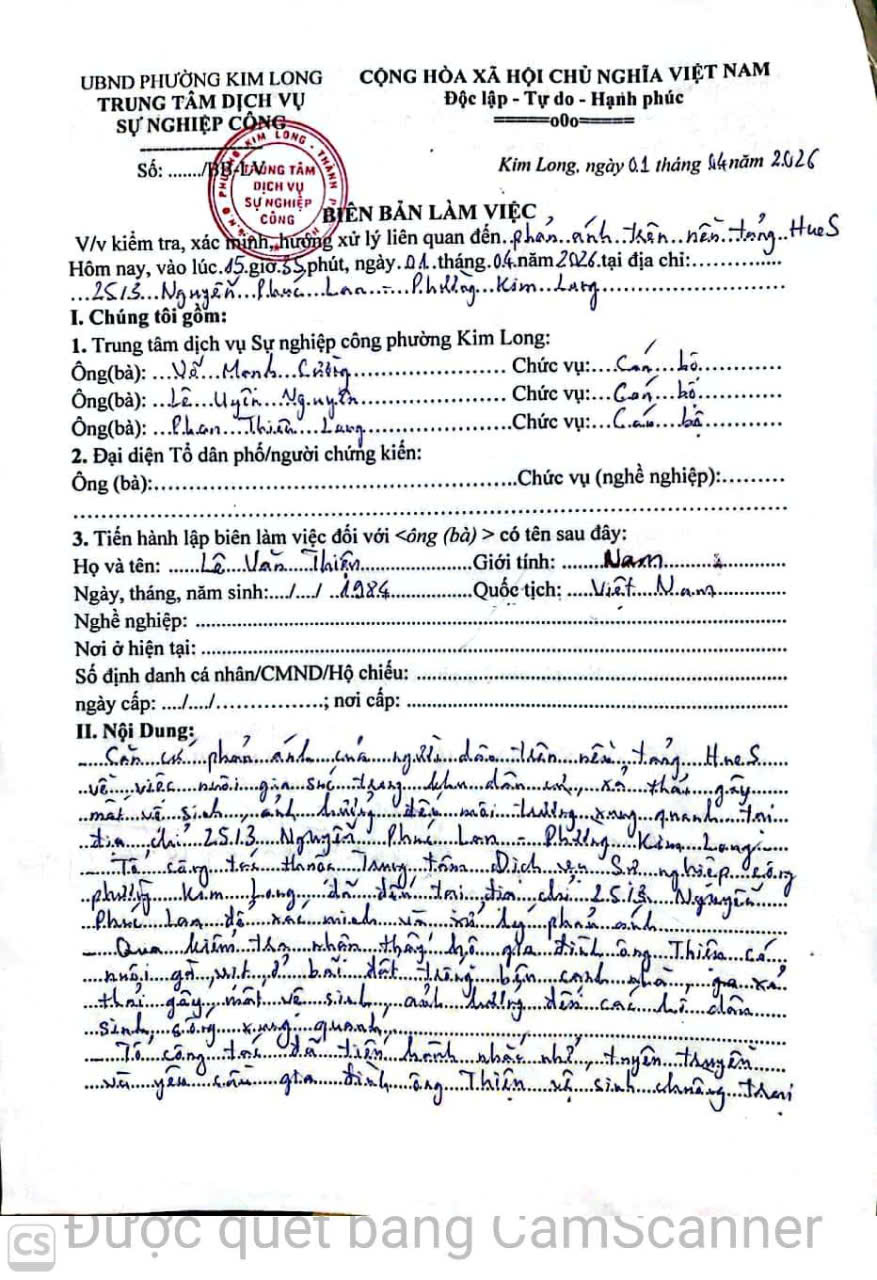 UBND PHƯỜNG KIM LONG
TRUNG TÂM DỊCH VỤ
SỰ NGHIỆP CÔNG
CỘNG HÒA XÃ HỘI CHỦ NGHĨA VIỆT NAM
Độc lập - Tự do - Hạnh phúc
======o0o======
Số: ......./BB-LV
TRUNG TÂM
DỊCH VỤ
SỰ NGHIỆP
CÔNG
Kim Long, ngày 01 tháng 04 năm 2026
BIÊN BẢN LÀM VIỆC
V/v kiểm tra, xác minh, hướng xử lý liên quan đến phản ánh trên nền tảng HueS
Hôm nay, vào lúc 15 giờ 35 phút, ngày 01 tháng 04 năm 2026 tại địa chỉ:
25/3 Nguyễn Phúc Lan - Phường Kim Long
I. Chúng tôi gồm:
1. Trung tâm dịch vụ Sự nghiệp công phường Kim Long:
Ông(bà): Võ Mạnh Cường Chức vụ: Cán bộ
Ông(bà): Lê Uyên Nguyên Chức vụ: Cán bộ
Ông(bà): Phan Thiên Long Chức vụ: Cán bộ
2. Đại diện Tổ dân phố/người chứng kiến:
Ông (bà): Chức vụ (nghề nghiệp):
3. Tiến hành lập biên làm việc đối với <ông (bà) > có tên sau đây:
Họ và tên: Lê Văn Thiện Giới tính: Nam
Ngày, tháng, năm sinh:.../.../ 1984 Quốc tịch: Việt Nam
Nghề nghiệp:
Nơi ở hiện tại:
Số định danh cá nhân/CMND/Hộ chiếu:
ngày cấp: ..../..../ ; nơi cấp:
II. Nội Dung:
Căn cứ phản ánh của người dân trên nền tảng HueS
về việc nuôi gia súc trong khu dân cư, xả thải gây
mất vệ sinh, ảnh hưởng đến môi trường xung quanh tại
địa chỉ 25/3 Nguyễn Phúc Lan - Phường Kim Long.
Tổ công tác thuộc Trung tâm Dịch vụ Sự nghiệp công
phường Kim Long đã đến tại địa chỉ 25/3 Nguyễn
Phúc Lan để xác minh và xử lý phản ánh
Qua kiểm tra nhận thấy hộ gia đình ông Thiện có
nuôi gà, vịt, ở bãi đất trống bên cạnh nhà, xả
thải gây mất vệ sinh, ảnh hưởng đến các hộ dân
sinh sống xung quanh,
Tổ công tác đã tiến hành nhắc nhở, tuyên truyền
và yêu cầu gia đình ông Thiện vệ sinh chuồng trại
CS Được quét bằng CamScanner